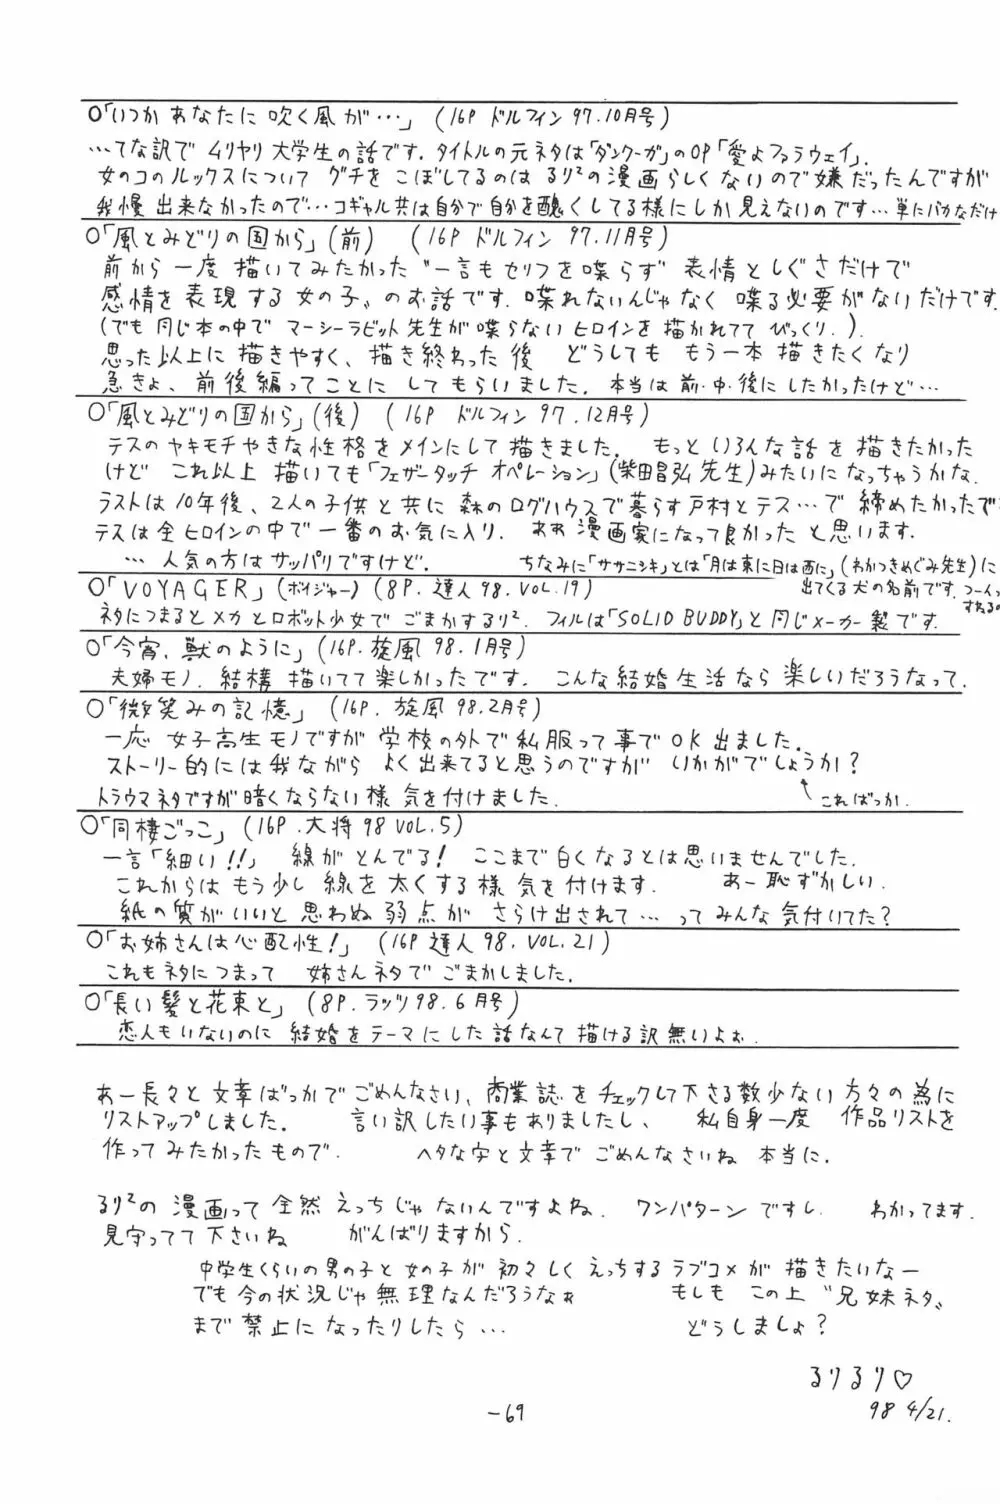 ○「いつか あなたに 吹く風が…」 (16P ドルフィン 97.10月号)
…てな訳で ムリヤリ 大学生の話です. タイトルの元ネタは「ダンクーガ」のOP「愛よファラウェイ」.
女のコのルックスについて グチを こぼしてるのは るり²の漫画らしくないので嫌だったんですが
我慢出来なかったので…コギャル共は自分で自分を醜くしてる様にしか見えないのです…単にバカなだけ
○「風とみどりの国から」(前) (16P ドルフィン 97.11月号)
前から一度 描いてみたかった “一言もセリフを喋らず” 表情としぐさだけで
感情を表現する女の子〟のお話です. 喋れないんじゃなく 喋る必要がないだけです.
(でも同じ本の中で マーシーラビット先生が喋らないヒロインを描かれてて びっくり.).
思った以上に描きやすく、描き終わった後 どうしても もう一本 描きたくなり
急きょ、前後編ってことに してもらいました. 本当は前・中・後にしたかったけど…
○「風とみどりの国から」(後) (16P ドルフィン 97.12月号)
テスのヤキモチやきな性格をメインにして描きました. もっと いろんな話を描きたかった
けど これ以上描いても「フェザータッチ オペレーション」(柴田昌弘先生)みたいになっちゃうかな.
ラストは10年後、2人の子供と共に 森のログハウスで暮らす戸村とテス…で 締めたかったで
テスは全ヒロインの中で一番のお気に入り. ああ漫画家になって良かったと思います.
… 人気の方はサッパリですけど.
ちなみに「ササニシキ」とは「月は東に日は西に」(わかつきめぐみ先生)に
出てくる犬の名前です.
○「VOYAGER」(ボイジャー) (8P. 達人 98. VOL.19)
ネタにつまるとメカとロボット少女でごまかするり². フィルは「SOLID BUDDY」と同じメーカー製です.
○「今宵、獣のように」(16P. 旋風 98.1月号)
夫婦モノ. 結構描いてて楽しかったです. こんな結婚生活なら楽しいだろうなって.
○「微笑みの記憶」 (16P. 旋風 98.2月号)
一応 女子高生モノですが 学校の外で私服って事でOK出ました.
ストーリー的には我ながら よく出来てると思うのですが いかがでしょうか?
トラウマネタですが暗くならない様 気を付けました.
こればっか.
○「同棲ごっこ」(16P. 大将 98 VOL.5)
一言「細い!!」 線が とんでる! ここまで白くなるとは思いませんでした.
これからは もう少し 線を太くする様 気を付けます. あー恥ずかしい.
紙の質がいいと思わぬ弱点が さらけ出されて… ってみんな気付いてた?
○「お姉さんは心配性!」 (16P 達人98. VOL.21)
これもネタにつまって 姉さんネタでごまかしました.
○「長い髪と花束と」(8P. ラッツ98.6月号)
恋人もいないのに 結婚をテーマにした話なんて描ける訳無いよぉ.
あー長々と文章ばっかでごめんなさい、商業誌をチェックして下さる数少ない方々の為に
リストアップしました. 言い訳したい事もありましたし、 私自身一度 作品リストを
作ってみたかったもので. ヘタな字と文章でごめんなさいね 本当に.
るり²の漫画って 全然えっちじゃないんですよね. ワンパターンですし. わかってます.
見守ってて下さいね がんばりますから.
中学生くらいの男の子と女の子が 初々しくえっちするラブコメが 描きたいなー
でも今の状況じゃ無理なんだろうなぁ もしも この上 “兄妹ネタ〟
まで禁止になったりしたら… どうしましょ?
るりるり♡
98 4/21.
-69